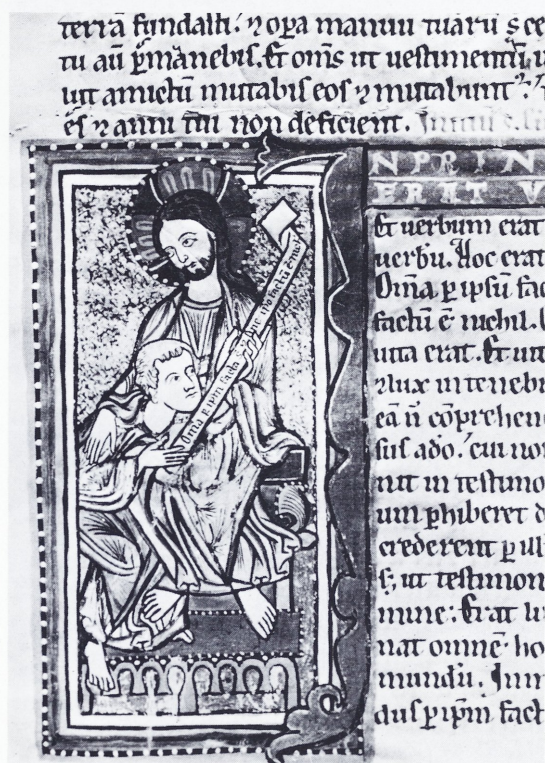 terrā fundasti. ⁊ opa manuū tuarū s
tu aū ꝑmanebis. Et om̄s ut uestimentū
uꝉt amictū mutabis eos ⁊ mutabunt᷑
es ⁊ anni tui non deficient.
NPRIN
ERAT V
Et uerbum erat
uerbū. Hoc erat
Om̄a ꝑ ipsū fac
factū ē nichil.
Om̄a ꝑ ipm̄ facta
uita erat. Et uit
⁊ lux in tenebr
eā ñ cōprehen
sus a do. cui no
nit in testimo
um ꝑhiberet d
crederent ꝑ ill
s; ut testimon
mine. Erat lu
nat omnē ho
mundū. In m
dus ꝑ ipm̄ fact